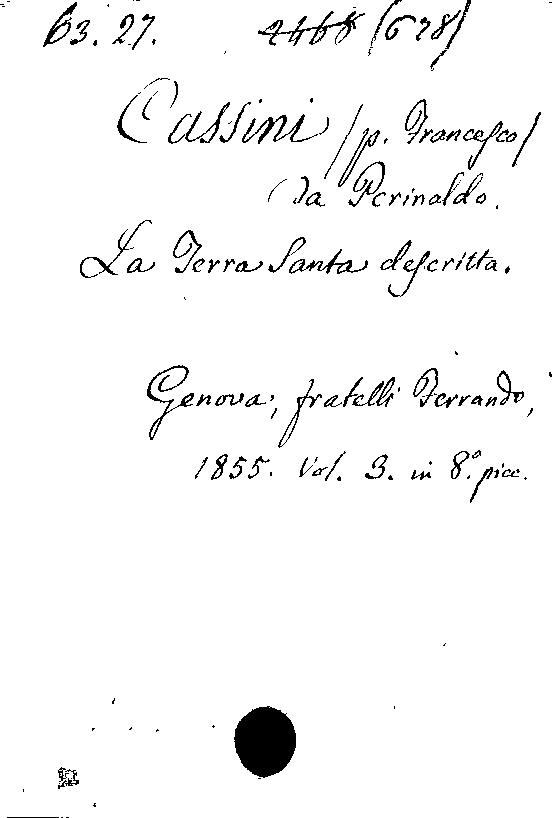 63. 27. 2468 (678)
Cassini / p. Francesco /
da Perinaldo.
La Terra Santa descritta.
Genova, fratelli Ferrando,
1855. Vol. 3. in 8.º picc.